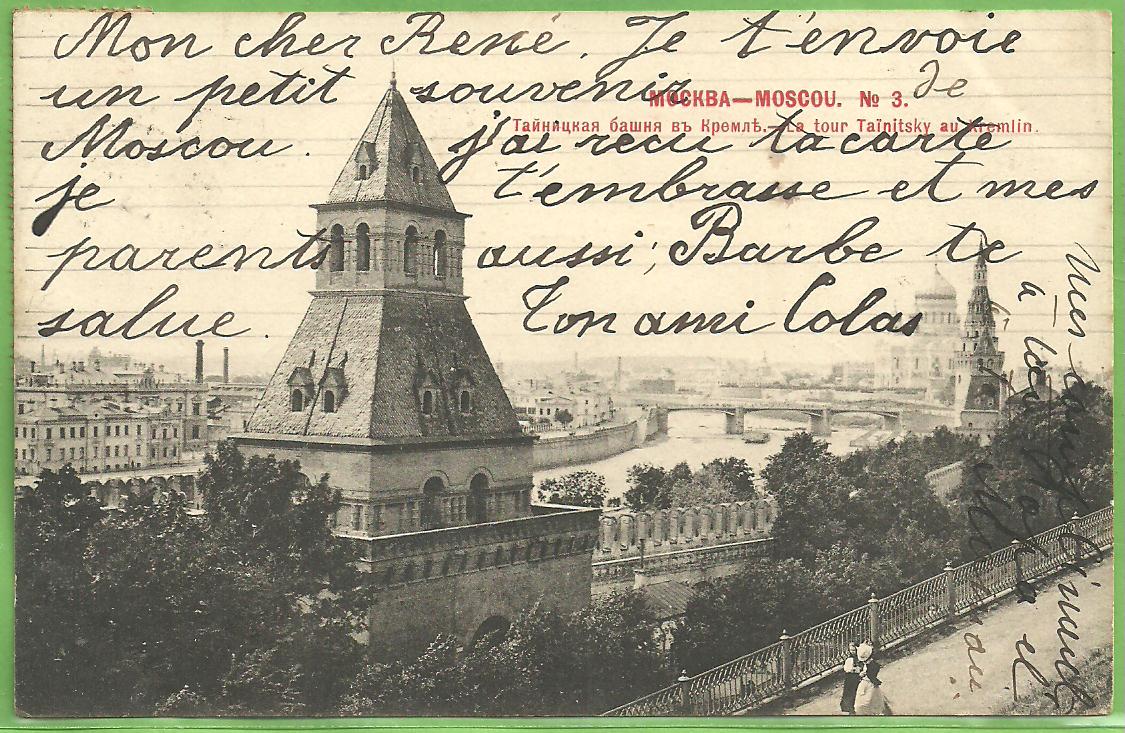 Mon cher René. Je t'envoie
un petit souvenir de
МОСКВА—MOSCOU. № 3.
Тайницкая башня въ Кремлѣ.—La tour Taïnitsky au Kremlin.
Moscou. j'ai recu ta carte
je t'embrasse et mes
parents aussi; Barbe te
salue. Ton ami Colas
à
el